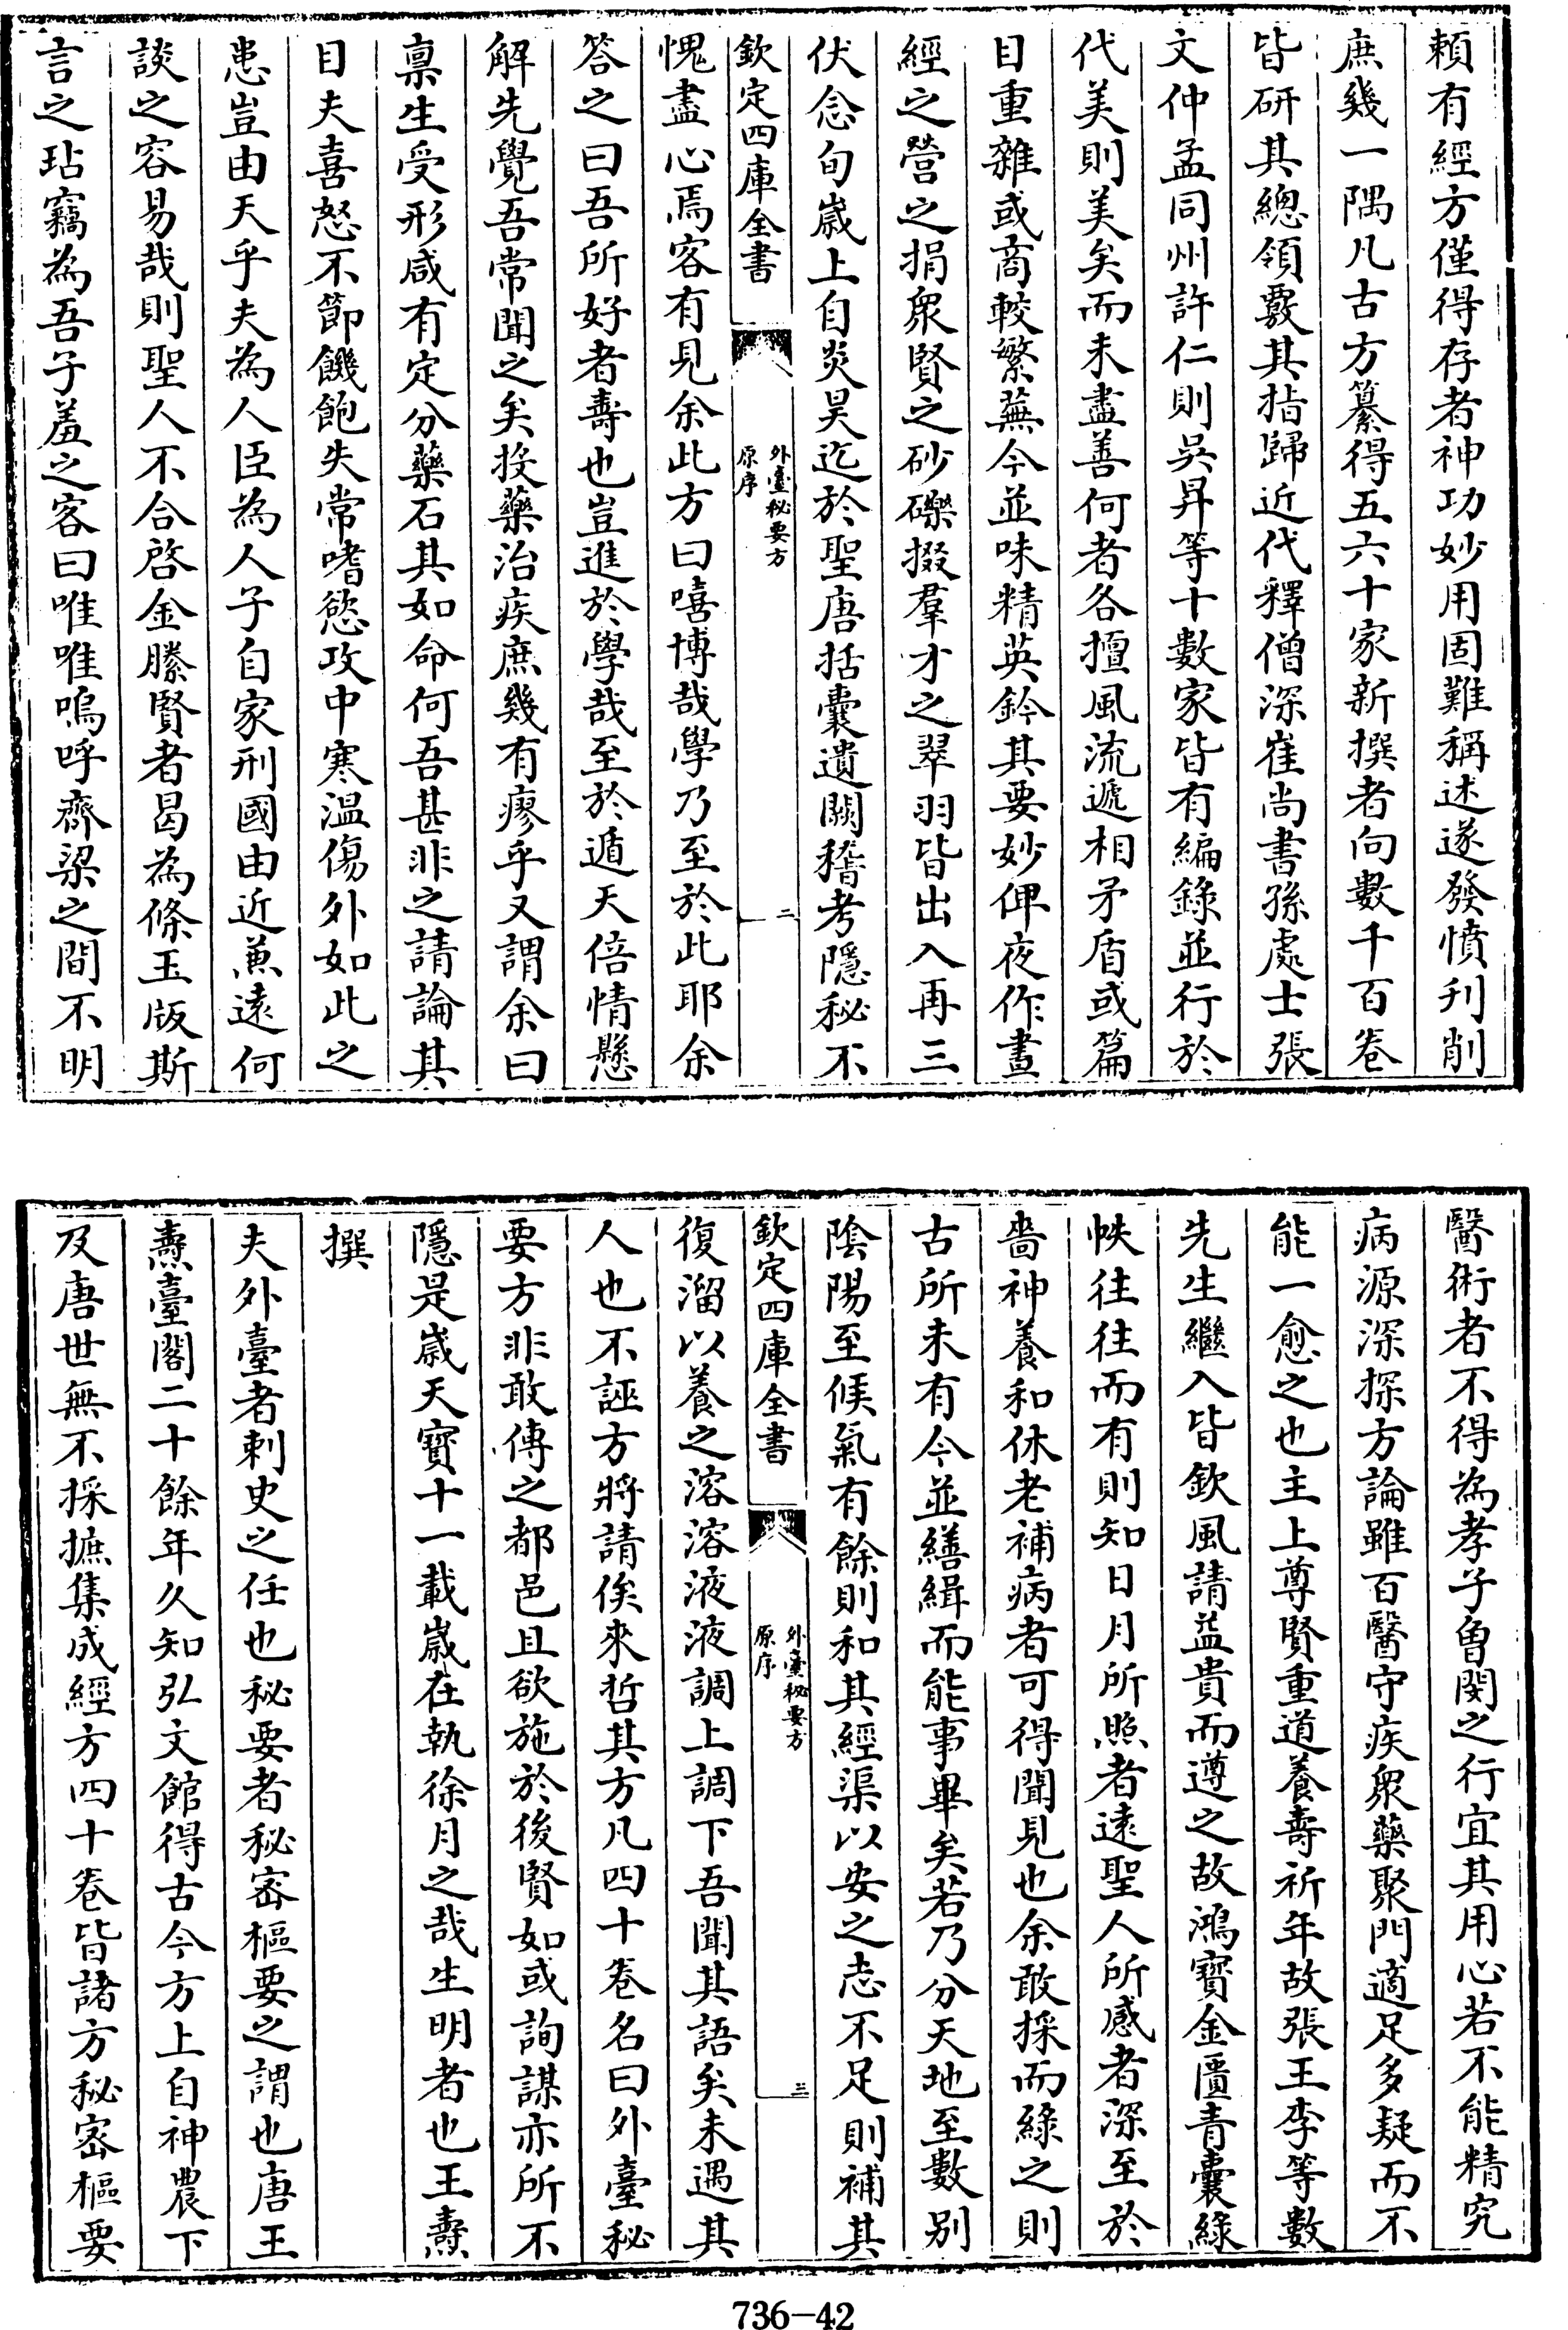 賴有經方僅得存者神功妙用固難稱述遂發憤刋削
庶幾一隅凡古方纂得五六十家新撰者向數千百卷
皆研其總領覈其指歸近代釋僧深崔尚書孫處士張
文仲孟同州許仁則吳昇等十數家皆有編錄並行於
代美則美矣而未盡善何者各擅風流遞相矛盾或篇
目重雜或商較繁蕪今並味精英鈐其要妙俾夜作晝
經之營之捐衆賢之砂礫掇羣才之翠羽皆出入再三
伏念旬歲上自炎昊迄於聖唐括囊遺闕稽考隱秘不
欽定四庫全書
外臺秘要方
原序
二
愧盡心焉客有見余此方曰嘻博哉學乃至於此耶余
答之曰吾所好者壽也豈進於學哉至於遁天倍情懸
解先覺吾常聞之矣投藥治疾庶幾有瘳乎又謂余曰
稟生受形咸有定分藥石其如命何吾甚非之請論其
目夫喜怒不節饑飽失常嗜慾攻中寒温傷外如此之
患豈由天乎夫為人臣為人子自家刑國由近兼遠何
談之容易哉則聖人不合啓金縢賢者曷為條玉版斯
言之玷竊為吾子羞之客曰唯唯嗚呼齊梁之間不明
醫術者不得為孝子曾閔之行宜其用心若不能精究
病源深探方論雖百醫守疾衆藥聚門適足多疑而不
能一愈之也主上尊賢重道養壽祈年故張王李等數
先生繼入皆欽風請益貴而遵之故鴻寶金匱青囊綠
帙往往而有則知日月所照者遠聖人所感者深至於
嗇神養和休老補病者可得聞見也余敢採而綠之則
古所未有今並繕緝而能事畢矣若乃分天地至數别
陰陽至候氣有餘則和其經渠以安之志不足則補其
欽定四庫全書
外臺秘要方
原序
三
復溜以養之溶溶液液調上調下吾聞其語矣未遇其
人也不誣方將請俟來哲其方凡四十卷名曰外臺秘
要方非敢傳之都邑且欲施於後賢如或詢謀亦所不
隱是歲天寶十一載歲在執徐月之哉生明者也王燾
撰
夫外臺者刺史之任也秘要者秘密樞要之謂也唐王
燾臺閣二十餘年久知弘文館得古今方上自神農下
及唐世無不採摭集成經方四十卷皆諸方秘密樞要
736-42